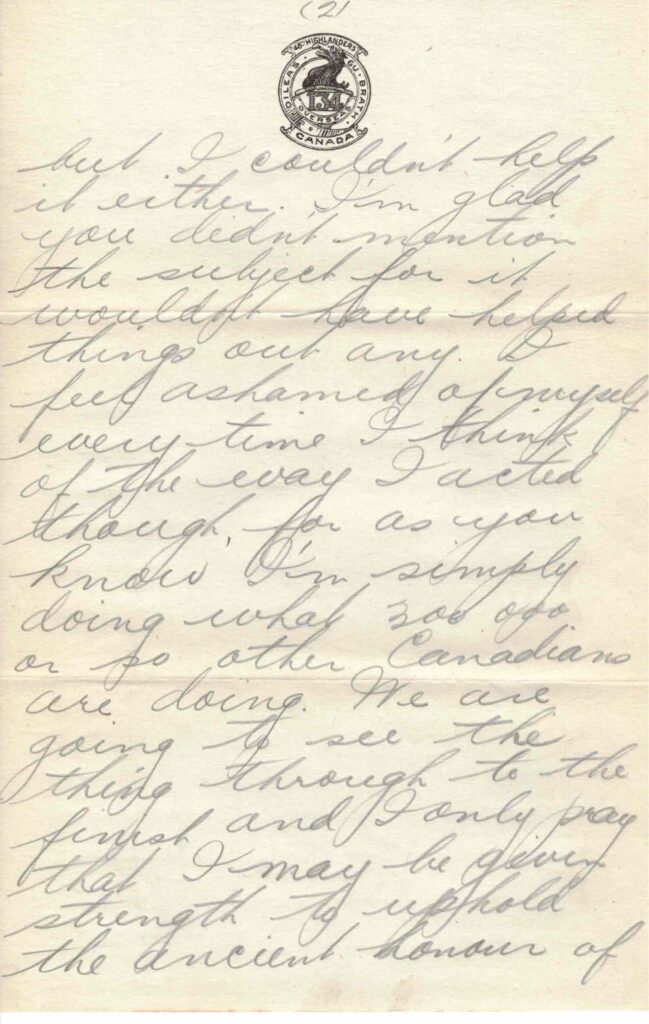 (2)
48TH HIGHLANDERS
DILEAS · GU · BRATH
134
OVERSEAS
CANADA
but I couldn't help
it either. I'm glad
you didn't mention
the subject for it
wouldn't have helped
things out any. I
feel ashamed of myself
every time I think
of the way I acted
though, for as you
know I'm simply
doing what 300 000
or so other Canadians
are doing. We are
going to see the
thing through to the
finish and I only pray
that I may be given
strength to uphold
the ancient honour of